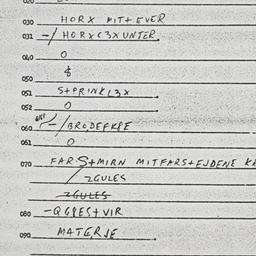 020
030 HORX MIT+EVER
031 -/HORXC3XUNTER
040 O
050 $
051 S+PRINKL3X
052 O
060 -/BRODEFKPE
061 O
070 FARS+MIRN MITFARS+EJDENE
/2GULES
2GULES
080 -QGPES+VIR
090 MATERJE